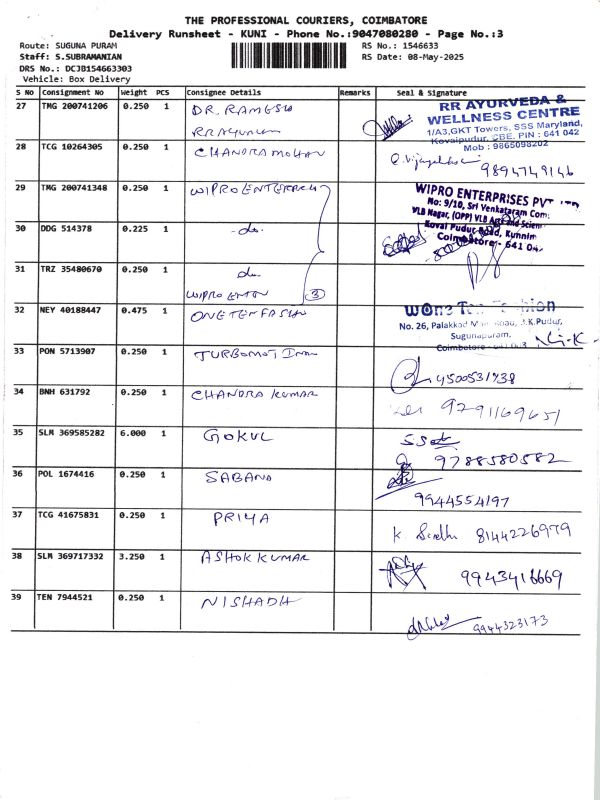 THE PROFESSIONAL COURIERS, COIMBATORE
Delivery Runsheet - KUNI - Phone No.:9047080280 - Page No.:3
Route: SUGUNA PURAM RS No.: 1546633
Staff: S.SUBRAMANIAN RS Date: 08-May-2025
DRS No.: DCJB154663303
Vehicle: Box Delivery
S No Consignment No Weight PCS Consignee Details Remarks Seal & Signature
27 TMG 200741206 0.250 1 DR. RAMESH
RR AYURVEDA &
WELLNESS CENTRE
1/A3,GKT Towers, SSS Maryland,
Kovaipudur, CBE. PIN : 641 042
Mob : 9865098202
28 TCG 10264305 0.250 1 CHANDRA MOHAN
9894749146
29 TMG 200741348 0.250 1 WIPRO ENTERPRI
WIPRO ENTERPRISES PVT LTD
No: 9/10, Sri Venkataram Com
VLB Nagar, (OPP) VLB Arts and Scien
Koval Pudur Road, Kunnim
Coimbatore - 641 04
30 DDG 514378 0.225 1 -do-
31 TRZ 35480670 0.250 1 do
WIPRO ENTER 3
32 NEY 40188447 0.475 1 ONE TEN FASH
wOne Ten Fashion
No. 26, Palakkad Main Road, B.K.Pudur,
Sugunapuram,
Coimbatore - 641 008
33 PON 5713907 0.250 1 TURBOMOT
4500531738
34 BNH 631792 0.250 1 CHANDRA KUMAR
9791169651
35 SLM 369585282 6.000 1 GOKUL
9788580582
36 POL 1674416 0.250 1 SABANA
9944554197
37 TCG 41675831 0.250 1 PRIYA
K. 8144226979
38 SLM 369717332 3.250 1 ASHOK KUMAR
9943416669
39 TEN 7944521 0.250 1 NISHADH
9944323173